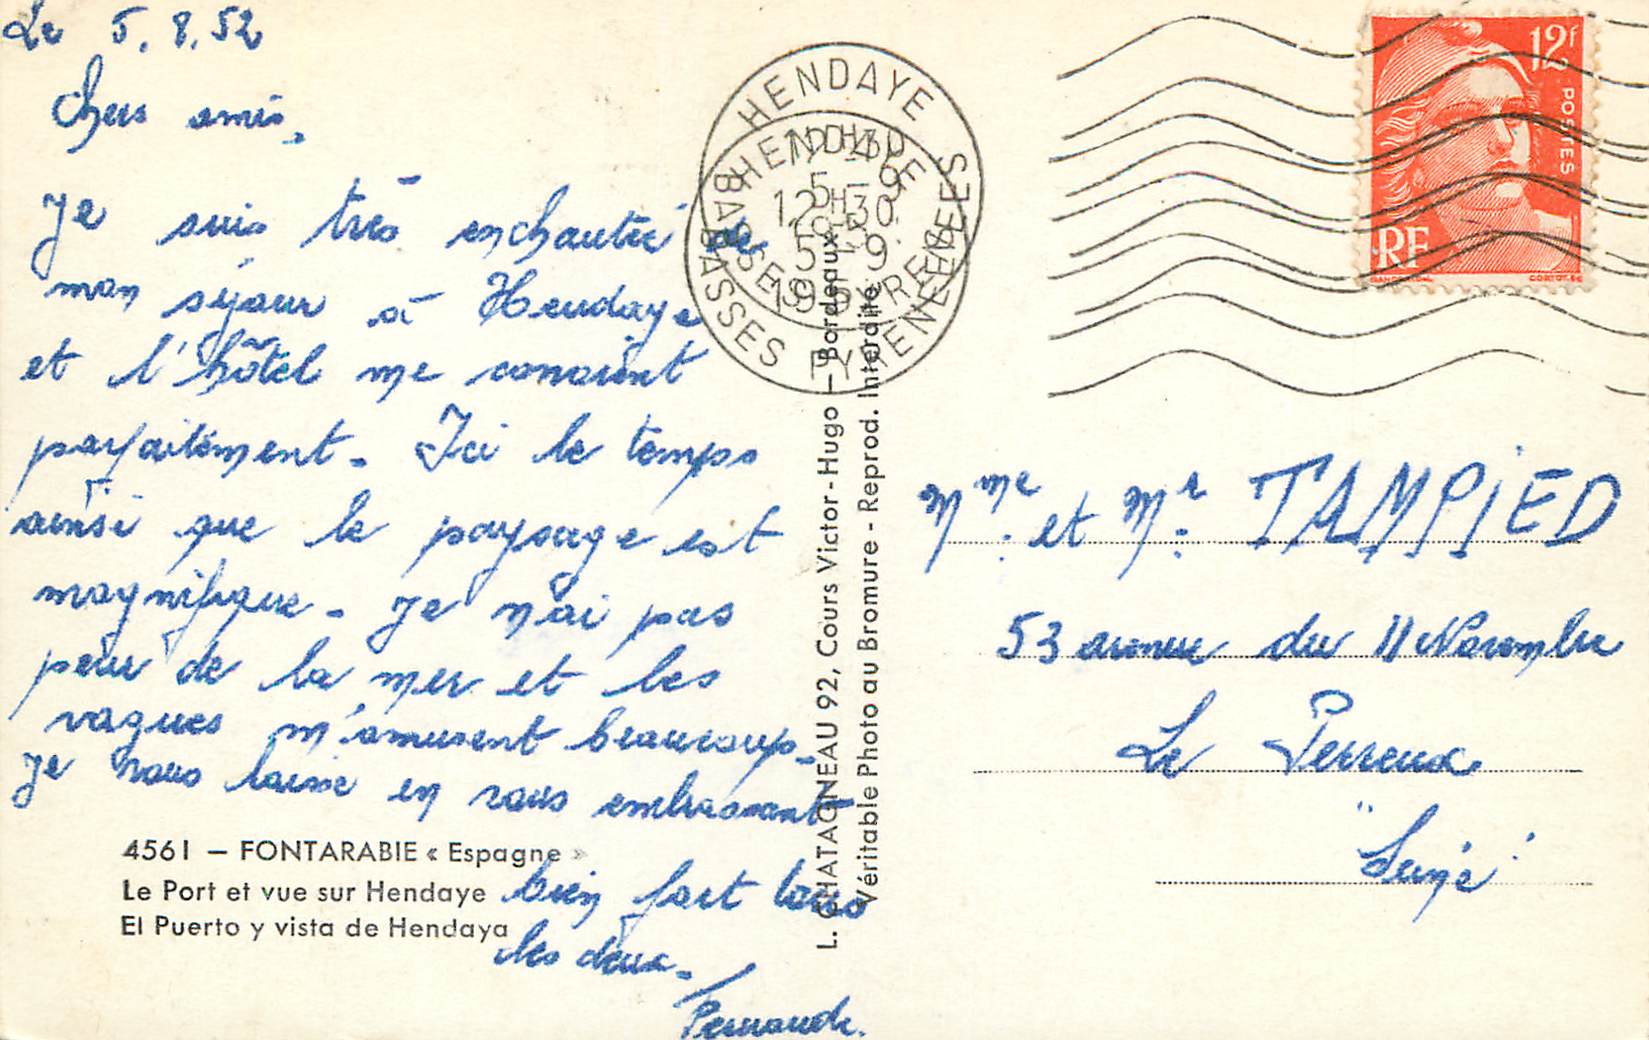 Le 5.8.52
Chers amis,
Je suis très enchantée de
mon séjour à Hendaye
et l'hôtel me convient
parfaitement. Ici le temps
ainsi que le paysage est
magnifique. Je n'ai pas
peur de la mer et les
vagues m'amusent beaucoup.
Je vous laisse en vous embrassant
bien fort tous
les deux.
Fernande.
4561 — FONTARABIE « Espagne »
Le Port et vue sur Hendaye
El Puerto y vista de Hendaya
L. CHATAGNEAU 92, Cours Victor-Hugo — Bordeaux
Véritable Photo au Bromure - Reprod. Interdite
HENDAYE
BASSES PYRENEES
HENDAYE
12H30
5 - 9
BASSES PYRENEES
12F
POSTES
RF
Mme et Mr TAMPIED
53 avenue du 11 Novembre
Le Perreux
"Seine"